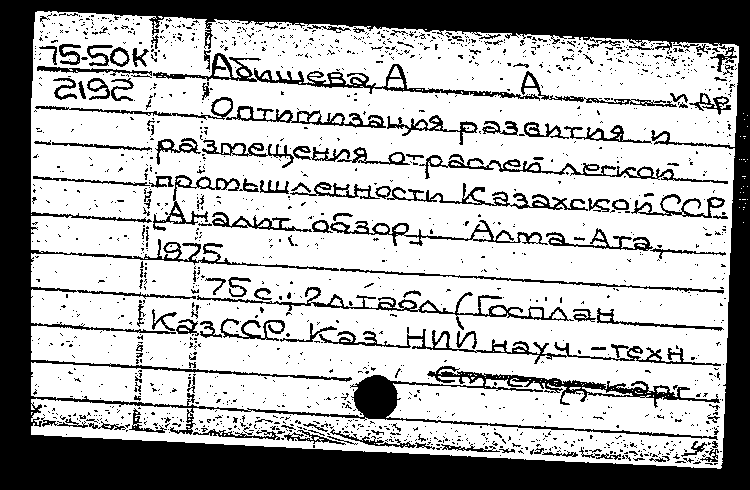 75-50К
2192
Абишева, А А и др
Оптимизация развития и
размещения отраслей легкой
промышленности Казахской ССР.
[Аналит. обзор]. Алма-Ата,
1975.
75 с.; 2 л. табл. (Госплан
КазССР. Каз. НИИ науч.-техн.
См. след. карт.